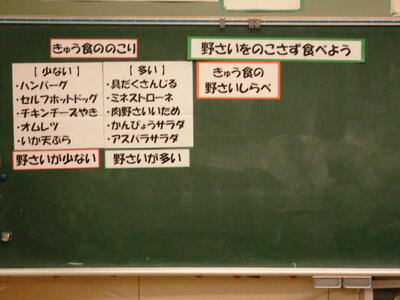 きゅう食ののこり
野さいをのこさず食べよう
【 少ない 】
・ハンバーグ
・セルフホットドッグ
・チキンチーズやき
・オムレツ
・いか天ぷら
【 多い 】
・具だくさんじる
・ミネストローネ
・肉野さいいため
・かんぴょうサラダ
・アスパラサラダ
きゅう食の
野さいしらべ
野さいが少ない
野さいが多い